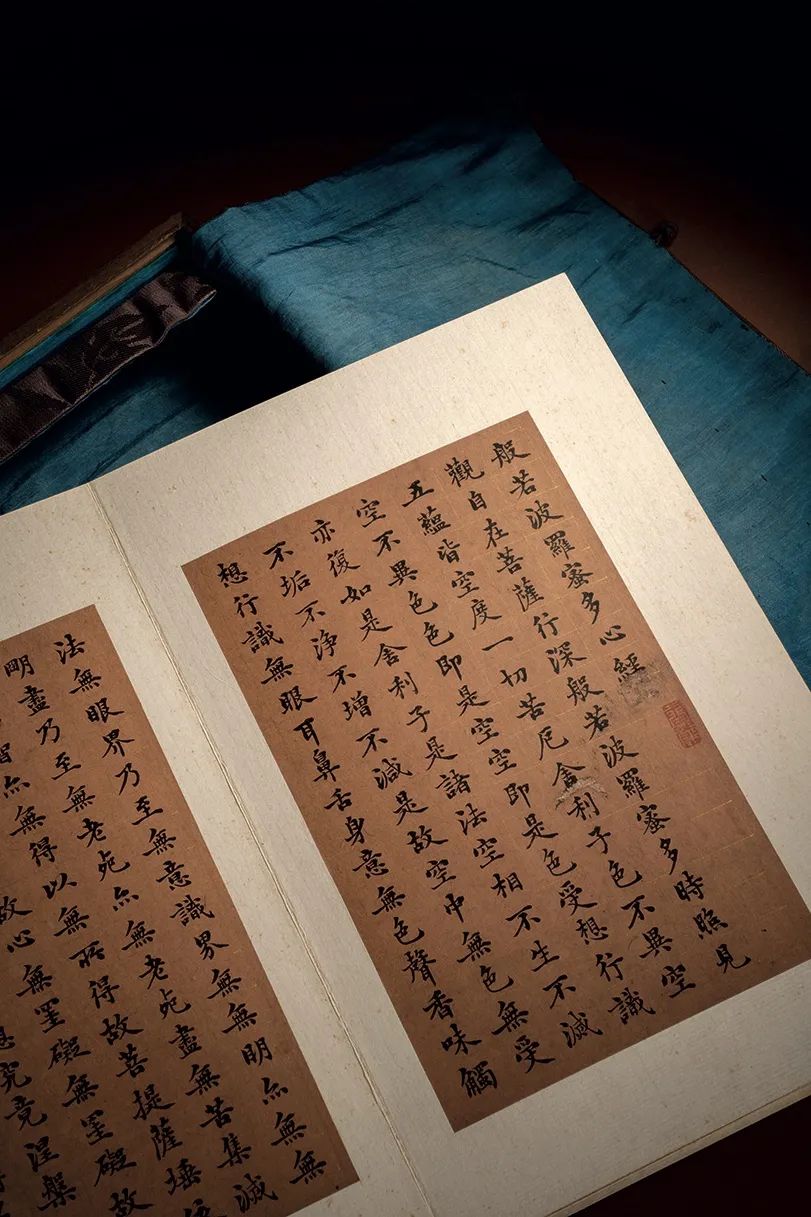 般若波羅蜜多心經
觀自在菩薩行深般若波羅蜜多時照見
五蘊皆空度一切苦厄舍利子色不異空
空不異色色即是空空即是色受想行識
亦復如是舍利子是諸法空相不生不滅
不垢不淨不增不減是故空中無色無受
想行識無眼耳鼻舌身意無色聲香味觸
法無眼界乃至無意識界無無明亦無無
明盡乃至無老死亦無老死盡無苦集滅
智亦無得以無所得故菩提薩埵
故心無罣礙無罣礙故
究竟涅槃